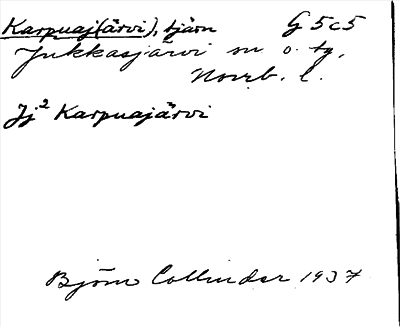 Karpuaj(ärvi), tjärn G 5c5
Jukkasjärvi sn o. tg,
Norrb. l.
Jj² Karpuajärvi
Björn Collinder 1937